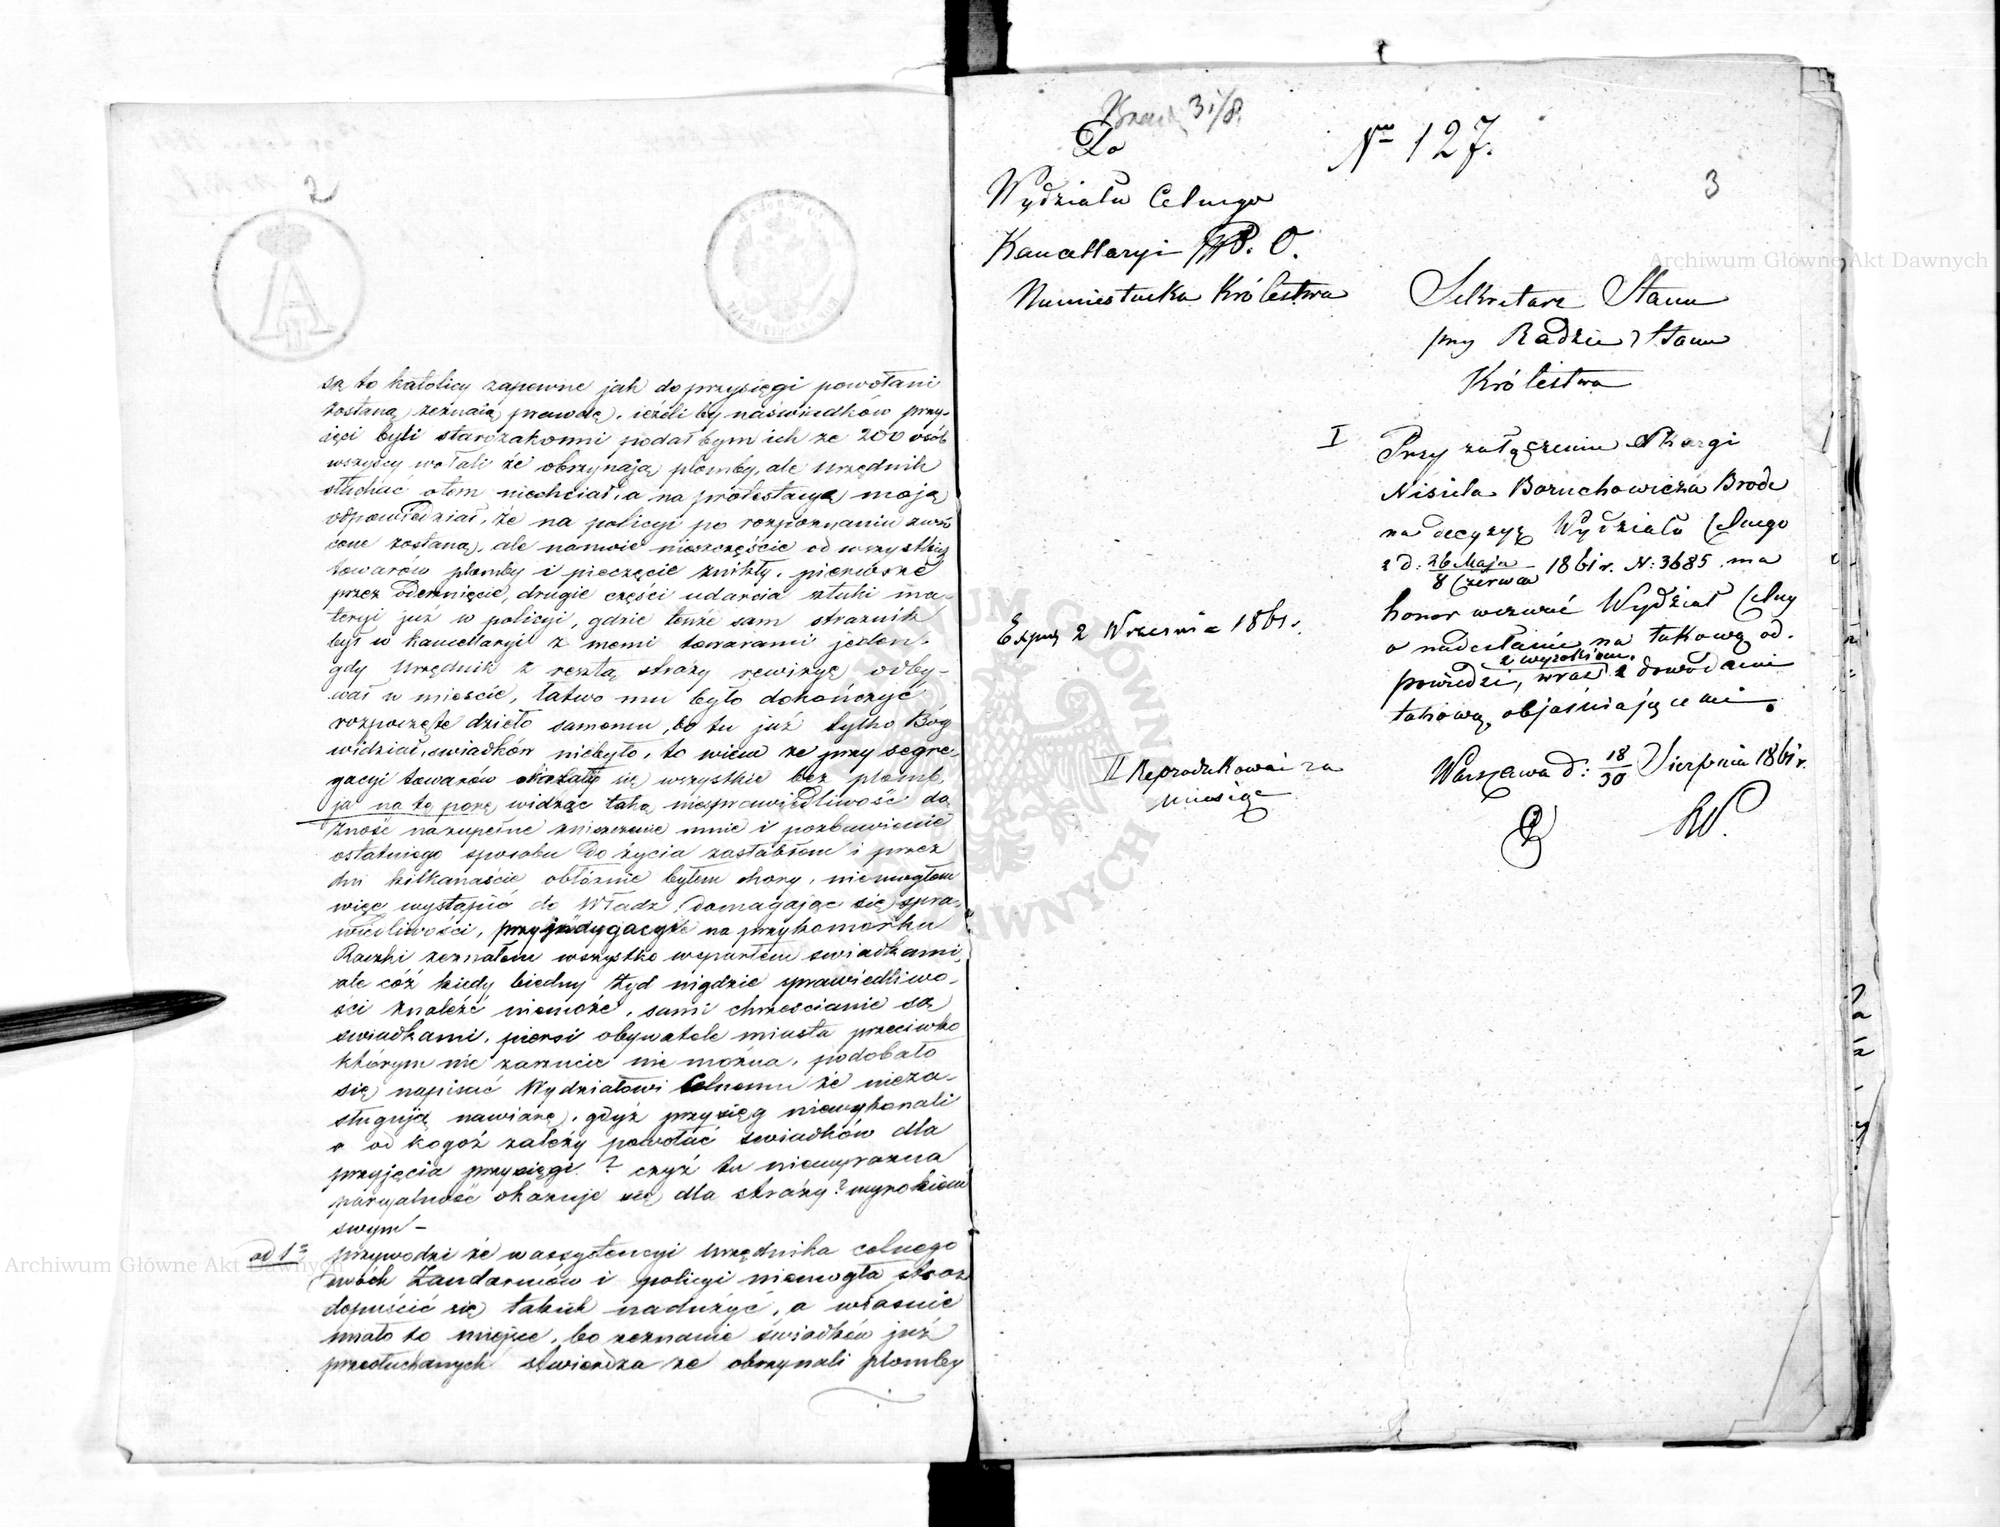 2
są to katolicy zapewne jak do przysięgi powołani
zostaną zeznaią prawdę, ieżeli by na świadków przy-
ięci byli starozakonni podałbym ich ze 200 osób
wszyscy wołali że obrzynają plomby, ale urzędnik
słuchać otem niechciał, a na protestacyą moją
odpowiedział, że na policyi po rozpoznaniu zwró
cone zostaną, ale na moie nieszczęście od wszystkich
towarów plomby i pieczęcie znikły, pierwsze
przez oderznięcie, drugie części udarcia sztuki ma-
teryi już w policyi, gdzie tenże sam strażnik
był w kancellaryi z memi towarami jeden,
gdy urzędnik z resztą straży rewizyę odby-
wał w mieście, łatwo mu było dokończyć
rozpoczęte dzieło samemu, bo tu już tylko Bóg
widział, swiadków niebyło, to wiem ze przy segre-
gacyi towarów okazały się wszystkie bez plomb,
ja na tę porę widząc taką niesprawiedliwość dą
żność na zupełne zniszczenie mnie i pozbawienie
ostatniego sposobu do życia zasłabłem i przez
dni kilkanaście obłożnie byłem chory, niemogłem
więc wystąpić do Władz, domagając się spra-
wiedliwości, przy na przykomorku
Raczki zeznałem wszystko wsparłem swiadkami,
ale cóż kiedy biedny żyd nigdzie sprawiedliwo-
ści znaleźć niemoże, sami chrzescianie są
swiadkami, pierwsi obywatele miasta przeciwko
którym nic zarzucic nie można, podobało
się napisać Wydziałowi Celnemu że nieza-
sługują na wiarę, gdyż przysięg niewykonali
a od kogoż zależy powołać swiadków dla
przyjęcia przysięgi? czyż tu niewyraźna
parcyalność okazuje się dla straży? wyrokiem
swym –
ad 1º przywodzi że w assystencyi urzędnika celnego
dwóch Żandarmów i policyi niemogła straż
dopuścić się takich nadużyć, a własnie
miało to miejsce, bo zeznanie świadków już
przesłuchanych stwierdza ze obrzynali plomby
31/8.
Do
Wydziału Celnego
Kancellaryi P. O.
Namiestnika Królestwa
Nº 127.
3
Sekretarz Stanu
przy Radzie Stanu
Królestwa
I Przy załączeniu Skargi
Nisiela Boruchowicza Brode
na decyzyę Wydziału Celnego
z d: 26 Maja / 8 Czerwca 1861 r. N: 3685 ma
honor wezwać Wydział Celny
o nadesłanie na takową od-
powiedzi, wraz z wyrokiem, z dowodami
takową objaśniającemi.
Warszawa d: 18/30 Sierpnia 1861 r.
Exped 2 Wrzesnia 1861 r.
II Reprodukować za
miesiąc
Archiwum Główne Akt Dawnych
Archiwum Główne Akt Dawnych